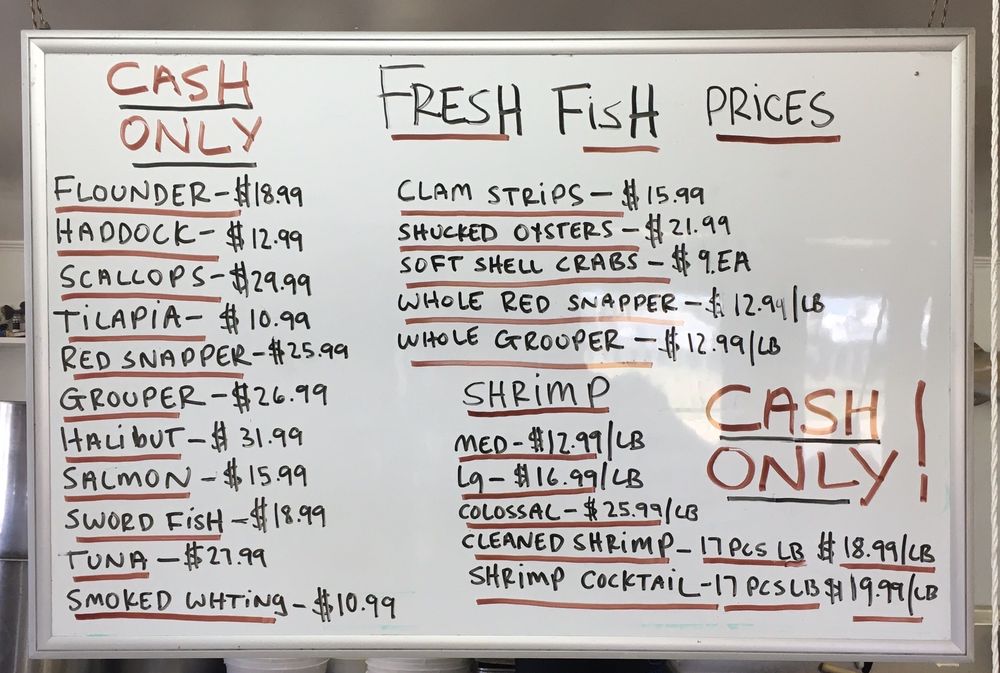 CASH
ONLY
FRESH FISH PRICES
FLOUNDER-$18.99
HADDOCK- $12.99
SCALLOPS-$29.99
TILAPIA- $10.99
RED SNAPPER-$25.99
GROUPER-$26.99
HALIBUT-$31.99
SALMON-$15.99
SWORD FISH-$18.99
TUNA-$27.99
SMOKED WHTING-$10.99
CLAM STRIPS-$15.99
SHUCKED OYSTERS-$21.99
SOFT SHELL CRABS-$9.EA
WHOLE RED SNAPPER-$12.99/LB
WHOLE GROUPER-$12.99/LB
SHRIMP
MED-$12.99/LB
Lg-$16.99/LB
COLOSSAL-$25.99/LB
CLEANED SHRIMP-17 PCS LB $18.99/LB
SHRIMP COCKTAIL-17 PCS LB $19.99/LB
CASH
ONLY!